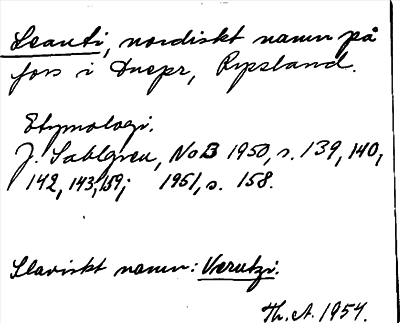 Leanti, nordiskt namn på
fors i Dnepr, Ryssland.
Etymologi.
J. Sahlgren, NoB 1950, s. 139, 140,
142, 143, 159; 1951, s. 158.
Slaviskt namn: Verutzi.
Th. A. 1954.